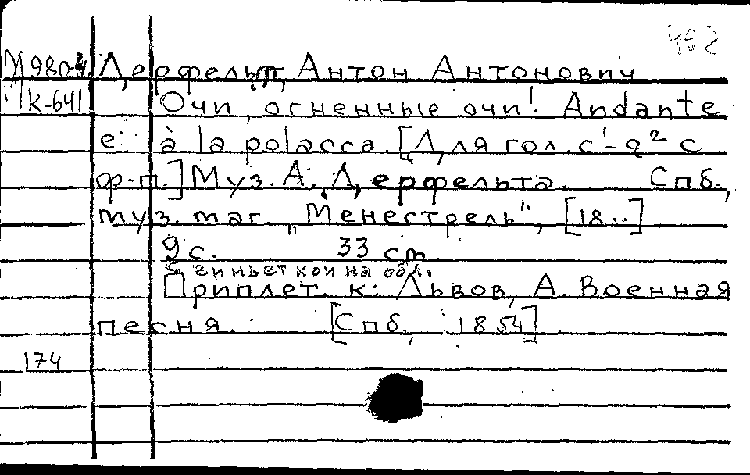 М980-4 Дерфельт, Антон Антонович
К-641 Очи, огненные очи! Andante
e à la polacca. [Для гол. c¹-a² с
ф-п.] Муз. А. Дерфельта. Спб.,
муз. маг. "Менестрель", [18..]
9 с. 33 cm.
С виньеткой на обл.
Приплет. к: Львов, А. Военная
песня. [Спб., 1854]
174